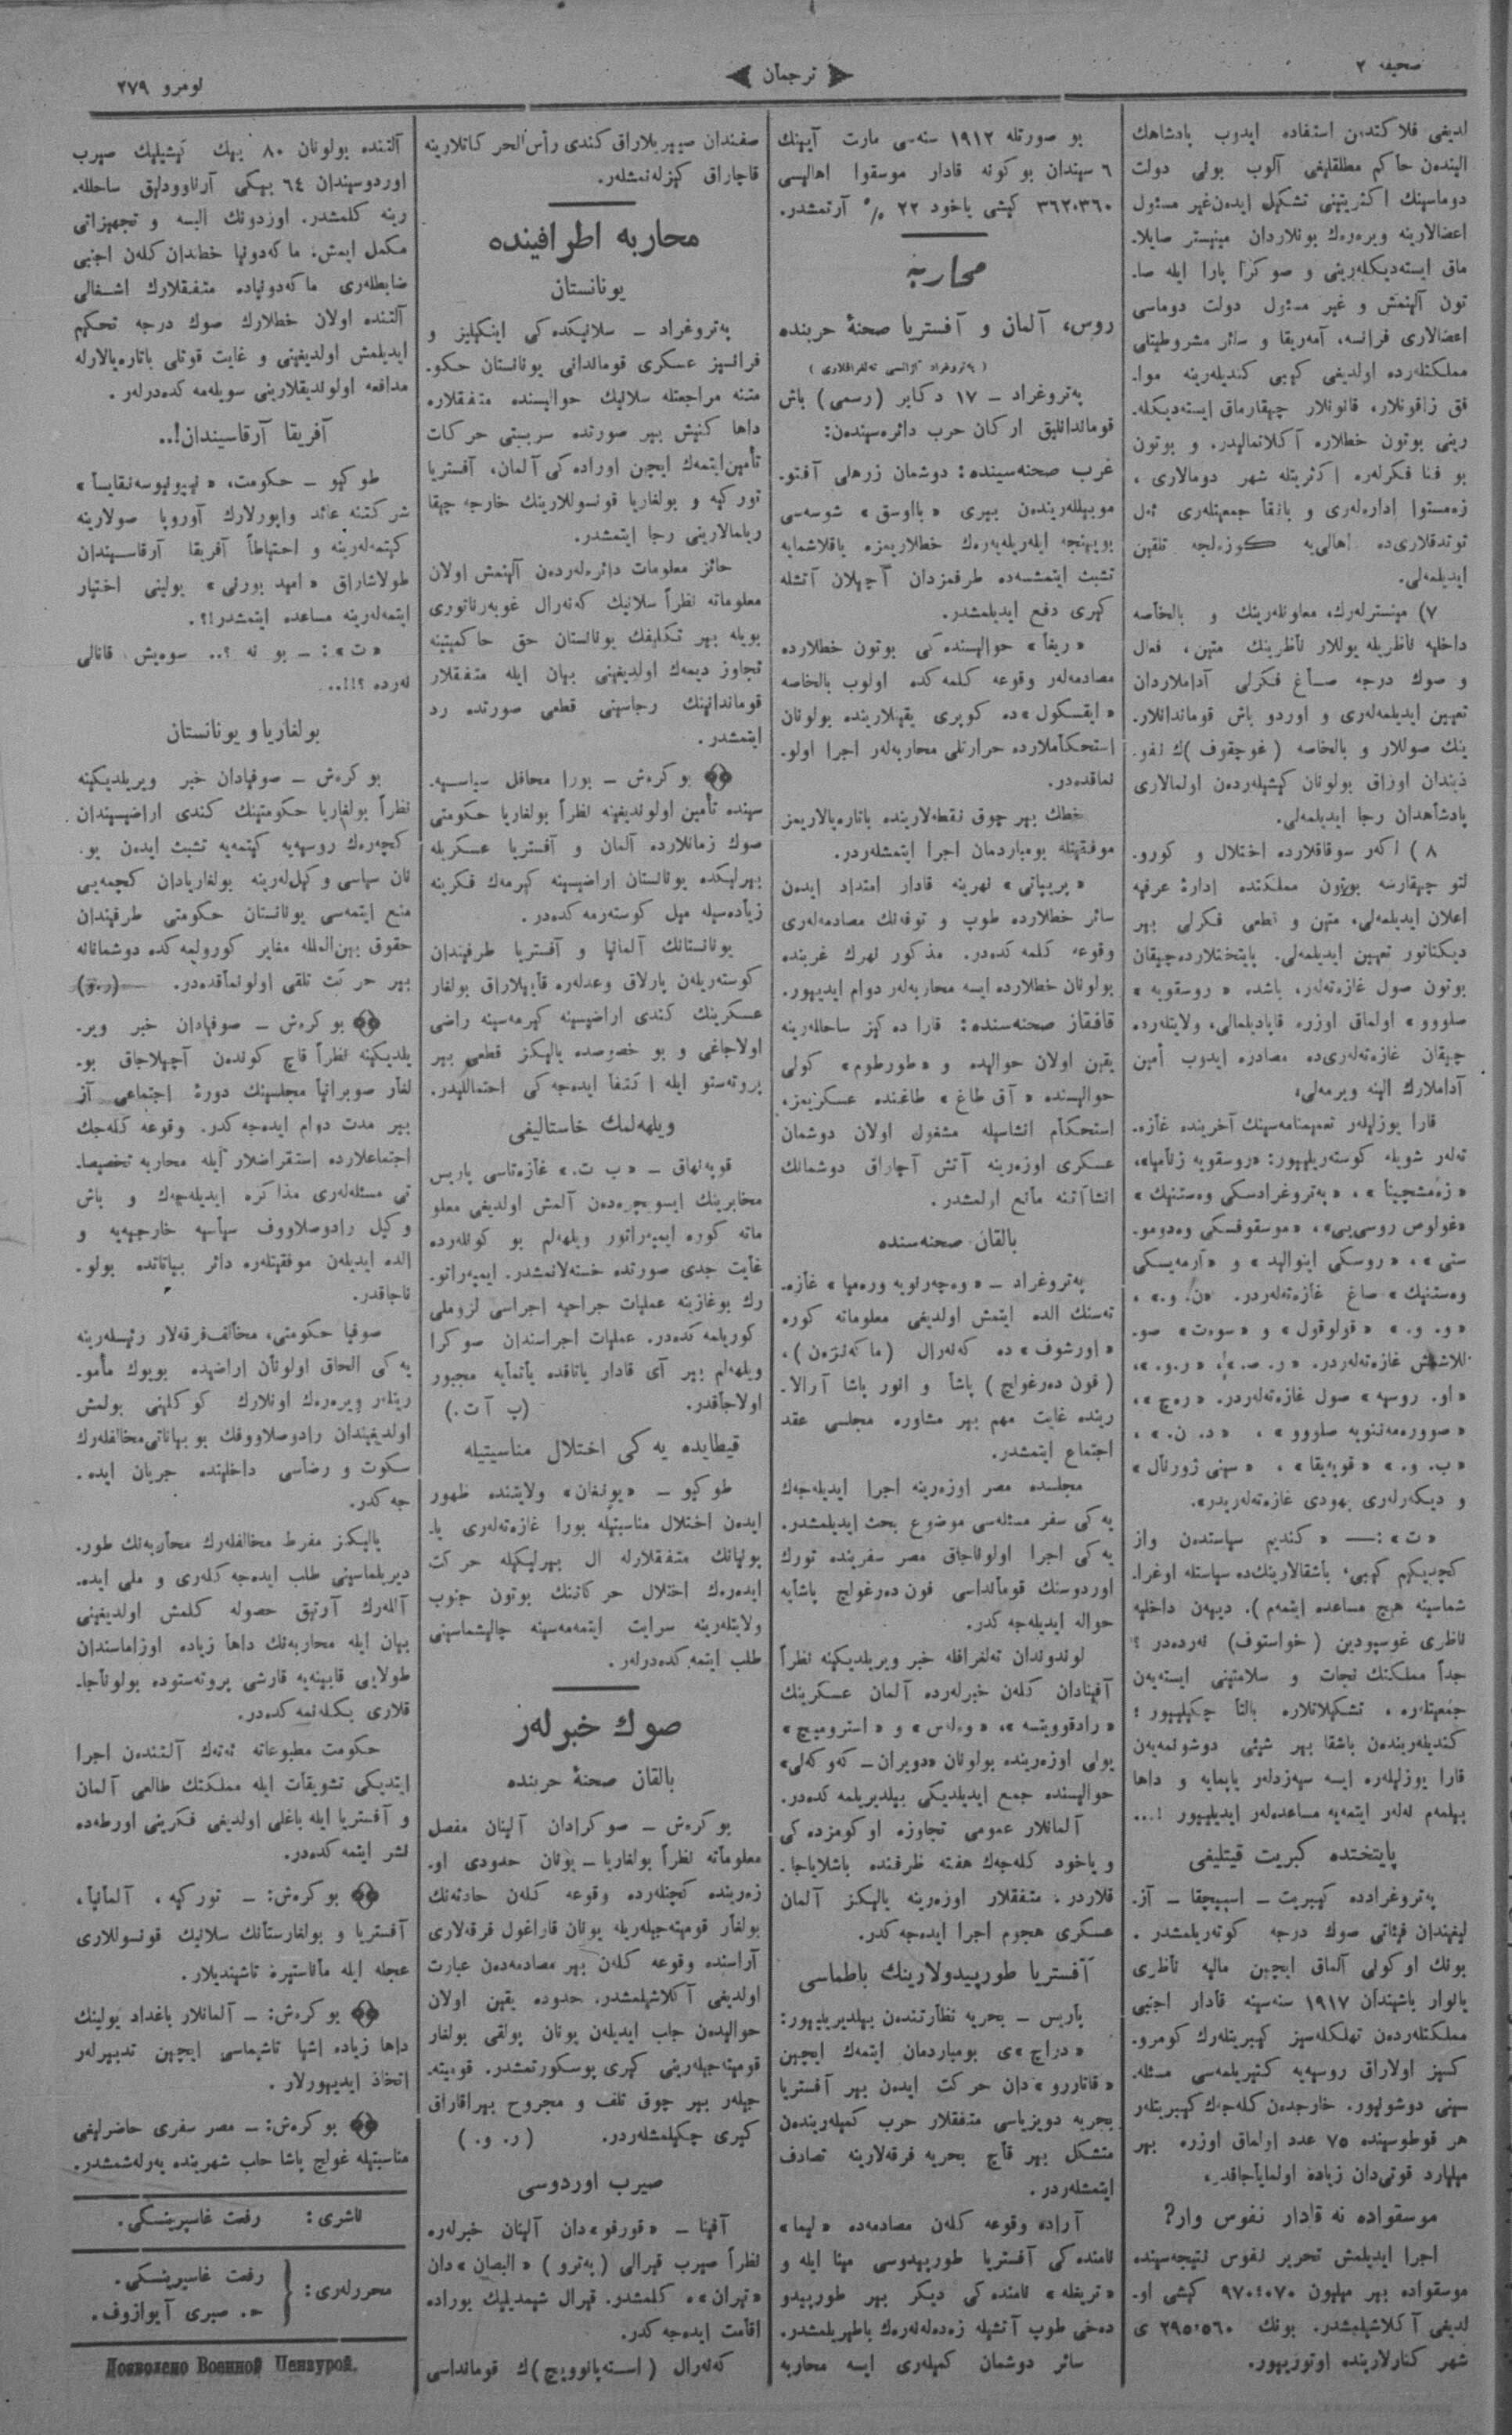 صحیفه ٢
ترجمان
نومرو ٢٧٩
لدیغی فلاکتدن استفاده ایدوب پادشاهك
الیندن حاکم مطلقلیغی آلوب بونی دولت
دوماسینك اکثریتینی تشکیل ایدەن غیر مسئول
اعضالارینه ویرەرەك بونلاردان مینیستر صایلا۔
ماق ایستەدیکلەرینی و صوکرا یارا ایله صا۔
تون آلینمش و غیر مسئول دولت دوماسی
اعضالاری فرانسه، آمەریقا و سائر مشروطیتلی
مملکتلەردە اولدیغی کیبی کندیلەرینه موا۔
فق زاقونلار، قانونلار چیقارماق ایستەدیکلە۔
رینی بوتون خطلارە آکلاتمالیدر. و بوتون
بو فنا فکرلەرە اکثریتله شهر دومالاری،
زەمستوا ادارەلەری و بانقا جمعیتلەری ئەل
توتدقلاری‌دە اهالی‌یه کوزەلجه تلقین
ایدیلمەلی.
٧) مینسترلەرك، معاونلەرینك و بالخاصه
داخلیه ناظریله یوللار ناظرینك متین، فعال
و صوك درجه صاغ فکرلی آداملاردان
تعیین ایدیلمەلەری و اوردو باش قوماندانلار۔
ینك صوللار و بالخاصه (غوچقوف)ك نفو۔
ذیندان اوزاق بولونان کیشیلەردەن اولمالاری
پادشاهدان رجا ایدیلمەلی.
٨) اکەر سوقاقلاردە اختلال و کورو۔
لتو چیقارسه بوتون مملکتدە ادارۀ عرفیه
اعلان ایدیلمەلی، متین و قطعی فکرلی بیر
دیکتاتور تعیین ایدیلمەلی. پایتختلاردەچیقان
بوتون صول غازەتەلەر، باشدە «روسقویه
صلووو» اولماق اوزرە قاپادیلمالی، ولایتلەردە
چیقان غازەتەلەری‌دە مصادرە ایدوب أمین
آداملارك الینه ویرمەلی،
قارا یوزلیلەر تعمیمنامەسینك آخریندە غازە۔
تەلەر شویله کوستەریلییور: «روسقویه زنامیا»،
«زەمشچینا»، «پەتروغرادسکی وەستنیك»
«غولوص روسی‌یی»، «موسقوفسکی وەدومو۔
ستی»، «روسکی اینوالید» و «آرمەیسکی
وەستنیك» صاغ غازەتەلەردر. «ن. و.»،
«و. و.» «قولوقول» و «سوەت» صو۔
للاشمش غازەتەلەردر. «ر. ص.»، «ر.و.»،
«او. روسیه» صول غازەتەلەردر. «رەچ»،
«صوورەمەننویه صلووو»، «د. ن.»،
«ب. و.» «قوپەیقا»، «سینی ژورنال»
و دیکەرلەری یهودی غازەتەلەریدر».
«ت»: — «کندیم سیاستدن واز
کچدیکم کیبی، باشقالارینك‌دە سیاستله اوغرا۔
شماسینه هیچ مساعدە ایتمەم). دییەن داخلیه
ناظری غوسپودین (خواستوف) نەردەدر؟
جداً مملکتك نجات و سلامتینی ایستەیەن
جمعیتلەرە، تشکیلاتلارە بالتا چکیلییور؛
کندیلەریندەن باشقا بیر شیئی دوشونمەیەن
قارا یوزلیلەرە ایسه سیەزدلەر یاپمایه و داها
بیلمەم نەلەر ایتمەیه مساعدەلەر ایدیلییور!...
پایتختدە کبریت قیتلیغی
پەتروغراددە کیبریت - اسپیچقا - آز۔
لیغیندان فیئاتی صوك درجه کوتەریلمشدر.
بونك اوکونی آلماق ایچین مالیه ناظری
یانوار باشیندان ١٩١٧ سنەسینه قادار اجنبی
مملکتلەردەن تهلکەسیز کیبریتلەرك کومرو۔
کسیز اولاراق روسیەیه کتیریلمەسی مسئلە۔
سینی دوشونیور. خارجدەن کلەجەك کیبریتلەر
هر قوطوسیندە ٧٥ عدد اولماق اوزرە بیر
میلیارد قوتی‌دان زیادە اولمایاجاقدر.
موسقوادە نه قادار نفوس وار؟
اجرا ایدیلمش تحریر نفوس نتیجەسیندە
موسقوادە بیر میلیون ٩٧٠٤٠٧٠ کیشی او۔
لدیغی آکلاشیلیشدر. بونك ٢٩٥،٥٦٠ ی
شهر کنارلاریندە اوتوزییور.
بو صورتله ١٩١٢ سنەسی مارت آیینك
٦ سیندان بو کونه قادار موسقوا اهالیسی
٣٦٢٠٣٦٠ کیشی یاخود ٢٢ ٠/٠ آرتمشدر.
محاربه
روس، آلمان و آفستریا صحنۀ حربندە
(پەتروغراد آژانسی تەلغرافلاری)
پەتروغراد - ١٧ دکابر (رسمی) باش
قوماندانلیق ارکان حرب دائرەسیندەن:
غرب صحنەسیندە: دوشمان زرهلی آفتو۔
موبیللەریندەن بیری «بااوسق» شوسەسی
بویینجه ایلەریلەیەرەك خطلاریمزە یاقلاشمایه
تشبث ایتمشسەدە طرفمزدان آچیلان آتشله
کیری دفع ایدیلمشدر.
«ریغا» حوالیسندە کی بوتون خطلاردە
مصادمەلەر وقوعه کلمە کدە اولوب بالخاصه
«ایقسکول»دە کوپری یقینلاریندە بولونان
استحکاملاردە حرارتلی محاربەلەر اجرا اولو۔
نماقدەدر.
خطك بیر چوق نقطەلاریندە باتارەیالاریمز
موفقیتله بومباردمان اجرا ایتمشلەردر.
«پریپاتی» نهرینه قادار امتداد ایدەن
سائر خطلاردە طوپ و توفەنك مصادمەلەری
وقوعه کلمە کدەدر. مذکور نهرك غربندە
بولونان خطلاردە ایسه محاربەلەر دوام ایدییور.
قافقاز صحنەسندە: قارا دەکیز ساحللەرینه
یقین اولان حوالیدە و «طورطوم» کولی
حوالیسندە «آق طاغ» طاغندە عسکریمز،
استحکام انشاسیله مشغول اولان دوشمان
عسکری اوزەرینه آتش آچاراق دوشمانك
انشاآتنه مانع اولمشدر.
بالقان صحنەسندە
پەتروغراد - «وەچەرنویه ورەمیا» غازە۔
تەسنك الدە ایتمش اولدیغی معلوماته کورە
«اورشوف»دە کەنەرال (ماکەنزەن)،
(فون دەرغولچ) پاشا و انور پاشا آرالا۔
ریندە غایت مهم بیر مشاورە مجلسی عقد
اجتماع ایتمشدر.
مجلسدە مصر اوزەرینه اجرا ایدیلەجەك
یە کی سفر مسئلەسی موضوع بحث ایدیلمشدر.
یە کی اجرا اولوناجاق مصر سفریندە تورك
اوردوسنك قوماندانسی فون دەرغولچ پاشایه
حواله ایدیلەجە کدر.
لوندوندان تەلغرافله خبر ویریلدیکینه نظراً
آفینادان کلەن خبرلەردە آلمان عسکرینك
«رادوویتسه»، «وەلەس» و «استرومیچ»
یولی اوزەریندە بولونان «دویران - کەوکەلی»
حوالیسندە جمع ایدیلدیکی بیلدیریلمە کدەدر.
آلمانلار عمومی تجاوزە اوکومزدە کی
و یاخود کلەجەك هفته ظرفندە باشلایاجا۔
قلاردر. متفقلار اوزەرینه یالیکز آلمان
عسکری هجوم اجرا ایدەجە کدر.
آفستریا طورپیدولارینك باطماسی
پاریس - بحریه نظارتندەن بیلدیریلییور:
«دراچ»ی بومباردمان ایتمەك ایچین
«قاتاررو»دان حرکت ایدەن بیر آفستریا
بحریه دویزیاسی متفقلار حرب کمیلەریندەن
متشکل بیر قاچ بحریه فرقەلارینه تصادف
ایتمشلەردر.
آرادە وقوعه کلەن مصادمەدە «لیما»
نامندە کی آفستریا طورپیدوسی مینا ایله و
«تریغله» نامندە کی دیکر بیر طورپیدو
دەخی طوپ آتشیله زەدەلەنەرەك باطیریلمشدر.
سائر دوشمان کمیلەری ایسه محاربه
صفندان صیپریلاراق کندی رأس‌الحر کاتلارینه
قاچاراق کیزلەنمشلەر.
محاربه اطرافیندە
یونانستان
پەتروغراد - سلانیکدە کی اینکیلیز و
فرانسیز عسکری قوماندانی یونانستان حکو۔
متنه مراجعتله سلانیك حوالیسندە متفقلارە
داها کنیش بیر صورتدە سربستی حرکات
تأمین ایتمەك ایچین اورادە کی آلمان، آفستریا
تورکیه و بولغاریا قونسوللارینك خارجه چیقا
ریلمالارینی رجا ایتمشدر.
حائز معلومات دائرەلەردەن آلینمش اولان
معلوماته نظراً سلانیك کەنەرال غوبەرناتوری
بویله بیر تکلیفك یونانستان حق حاکمیتینه
تجاوز دیمەك اولدیغینی بیان ایله متفقلار
قوماندانینك رجاسینی قطعی صورتدە رد
ایتمشدر.
بوکرەش - بورا محافل سیاسیه۔
سیندە تأمین اولوندیغینه نظراً بولغاریا حکومتی
صوك زمانلاردە آلمان و آفستریا عسکریله
بیرلیکدە یونانستان اراضیسینه کیرمەك فکرینه
زیادەسیله میل کوستەرمە کدەدر.
یونانستانك آلمانیا و آفستریا طرفیندان
کوستەریلەن پارلاق وعدلەرە قاپیلاراق بولغار
عسکرینك کندی اراضیسینه کیرمەسینه راضی
اولاجاغی و بو خصوصدە یالیکز قطعی بیر
پروتەستو ایله اکتفا ایدەجە کی احتماللیدر.
ویلهەلمك خاستالیغی
قوپەنهاق - «ب ت.» غازەتاسی پاریس
مخابرینك ایسویچرەدەن آلمش اولدیغی معلو
ماته کورە ایمپەراتور ویلهەلم بو کونلەردە
غایت جدی صورتدە خستەلانمشدر. ایمپەراتو۔
رك بوغازینه عملیات جراحیه اجراسی لزوملی
کوریلمە کدەدر. عملیات اجراسندان صوکرا
ویلهەلم بیر آی قادار یاتاقدە یاتمایه مجبور
اولاجاقدر. (پ آ ت.)
قیطایدە یە کی اختلال مناسبتیله
طوکیو - «یونغان» ولایتندە ظهور
ایدەن اختلال مناسبتیله بورا غازەتەلەری یا۔
پونیانك متفقلارله ال بیرلیکیله حرکت
ایدەرەك اختلال حرکاتنك بوتون جنوب
ولایتلەرینه سرایت ایتمەمەسینه چالیشماسینی
طلب ایتمە کدەدرلەر.
صوك خبرلەر
بالقان صحنۀ حربندە
بوکرەش - صوکرادان آلینان مفصل
معلوماته نظراً بولغاریا - یونان حدودی او۔
زەریندە کچنلەردە وقوعه کلەن حادثەنك
بولغار قومیتەجیلەریله یونان قاراغول فرقەلاری
آراسندە وقوعه کلەن بیر مصادمەدەن عبارت
اولدیغی آکلاشیلمشدر. حدودە یقین اولان
حوالیدەن جلب ایدیلەن یونان پولقی بولغار
قومیتەجیلەرینی کیری پوسکورتمشدر. قومیتە۔
جیلەر بیر چوق تلف و مجروح بیراقاراق
کیری چکیلمشلەردر. (ر. و.)
صیرب اوردوسی
آفینا - «قورفو»دان آلینان خبرلەرە
نظراً صیرب قیرالی (پەترو) «الیصان»دان
«تیران»ە کلمشدر. قیرال شیمدیلیك بورادە
اقامت ایدەجە کدر.
کەنەرال (استەپانوویچ)ك قوماندانسی
آلتندە بولونان ٨٠ بیك کیشیلیك صیرب
اوردوسیندان ٦٤ بیکی آرناوودلیق ساحللە۔
رینه کلمشدر. اوردونك البسه و تجهیزاتی
مکمل ایمش. ماکەدونیا خطندان کلەن اجنبی
ضابطلەری ماکەدونیادە متفقلارك اشغالی
آلتندە اولان خطلارك صوك درجه تحکیم
ایدیلمش اولدیغینی و غایت قوتلی باتارەیالارله
مدافعه اولوندیقلارینی سویلەمە کدەدرلەر.
آفریقا آرقاسیندان!..
طوکیو - حکومت، «نیپونیوسەنقایسا»
شرکتنه عائد واپورلارك آوروپا صولارینه
کیتمەلەرینه و احتیاطاً آفریقا آرقاسیندان
طولاشاراق «امید بورنی» یولینی اختیار
ایتمەلەرینه مساعدە ایتمشدر؟!.
«ت»: - بو نه؟.. سوەیش قانالی
نەردە؟!!..
بولغاریا و یونانستان
بوکرەش - صوفیادان خبر ویریلدیکینه
نظراً بولغاریا حکومتینك کندی اراضیسیندان
کچەرەك روسیەیه کیتمەیه تشبث ایدەن یو۔
نان سیاسی وکیل‌لەرینه بولغاریادان کچمەیی
منع ایتمەسی یونانستان حکومتی طرفیندان
حقوق بین‌الملله مغایر کورولمە کدە دوشمانانه
بیر حرکت تلقی اولونماقدەدر. (ر.و)
بوکرەش - صوفیادان خبر ویر۔
یلدیکینه نظراً قاچ کوندەن آچیلاجاق بو۔
لغار صوبرانیا مجلسینك دورۀ اجتماعی آز
بیر مدت دوام ایدەجە کدر. وقوعه کلەجك
اجتماعلاردە استقراضلار ایله محاربه تخصیصا۔
تی مسئلەلەری مذاکرە ایدیلەجەك و باش
وکیل رادوصلاووف سیاسیه خارجیەیه و
الدە ایدیلەن موفقیتلەرە دائر بیاناتدە بولو۔
ناجاقدر.
صوفیا حکومتی، مخالف فرقەلار رئیسلەرینه
یە کی الحاق اولونان اراضیدە بویوك مأمو۔
ریتلەر ویرەرەك اونلارك کوکلینی بولمش
اولدیغیندان رادوصلاووفك بو بیاناتی مخالفلەرك
سکوت و رضاسی داخلیندە جریان ایدە۔
جە کدر.
یالیکز مفرط مخالفلەرك محاربەنك طور۔
دیریلماسینی طلب ایدەجە کلەری و ملی ایدە۔
آللەرك آرتیق حصوله کلمش اولدیغینی
بیان ایله محاربەنك داها زیادە اوزاماسندان
طولایی قابینەیه قارشی پروتەستودە بولوناجا۔
قلاری بکلەنمە کدەدر.
حکومت مطبوعاته ئەتەك آلتندەن اجرا
ایتدیکی تشویقات ایله مملکتك طالعی آلمان
و آفستریا ایله باغلی اولدیغی فکرینی اورطەدە
نشر ایتمە کدەدر.
بوکرەش: - تورکیه، آلمانیا،
آفستریا و بولغارستانك سلانیك قونسوللاری
عجله ایله ماناستیرە تاشیندیلار.
بوکرەش: - آلمانلار باغداد یولینك
داها زیادە اشیا تاشیماسی ایچین تدبیرلەر
اتخاذ ایدییورلار.
بوکرەش: - مصر سفری حاضرلیغی
مناسبتیله غولچ پاشا حلب شهریندە یەرلەشمشدر.
ناشری: رفعت غاسپرینسکی.
محررلەری: رفعت غاسپرینسکی.
ح. صبری آیوازوف.
Дозволено Военной Цензурой.